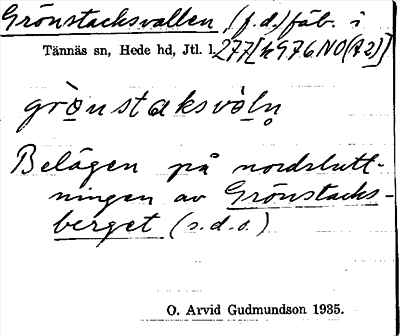 Grönstacksvallen (f.d.) fäb. i
Tännäs sn, Hede hd, Jtl. l. 277 [k 976 NO (72)]
grönstaksvàln̥
Belägen på nordslutt-
ningen av Grönstacks-
berget (s.d.o.)
O. Arvid Gudmundson 1935.